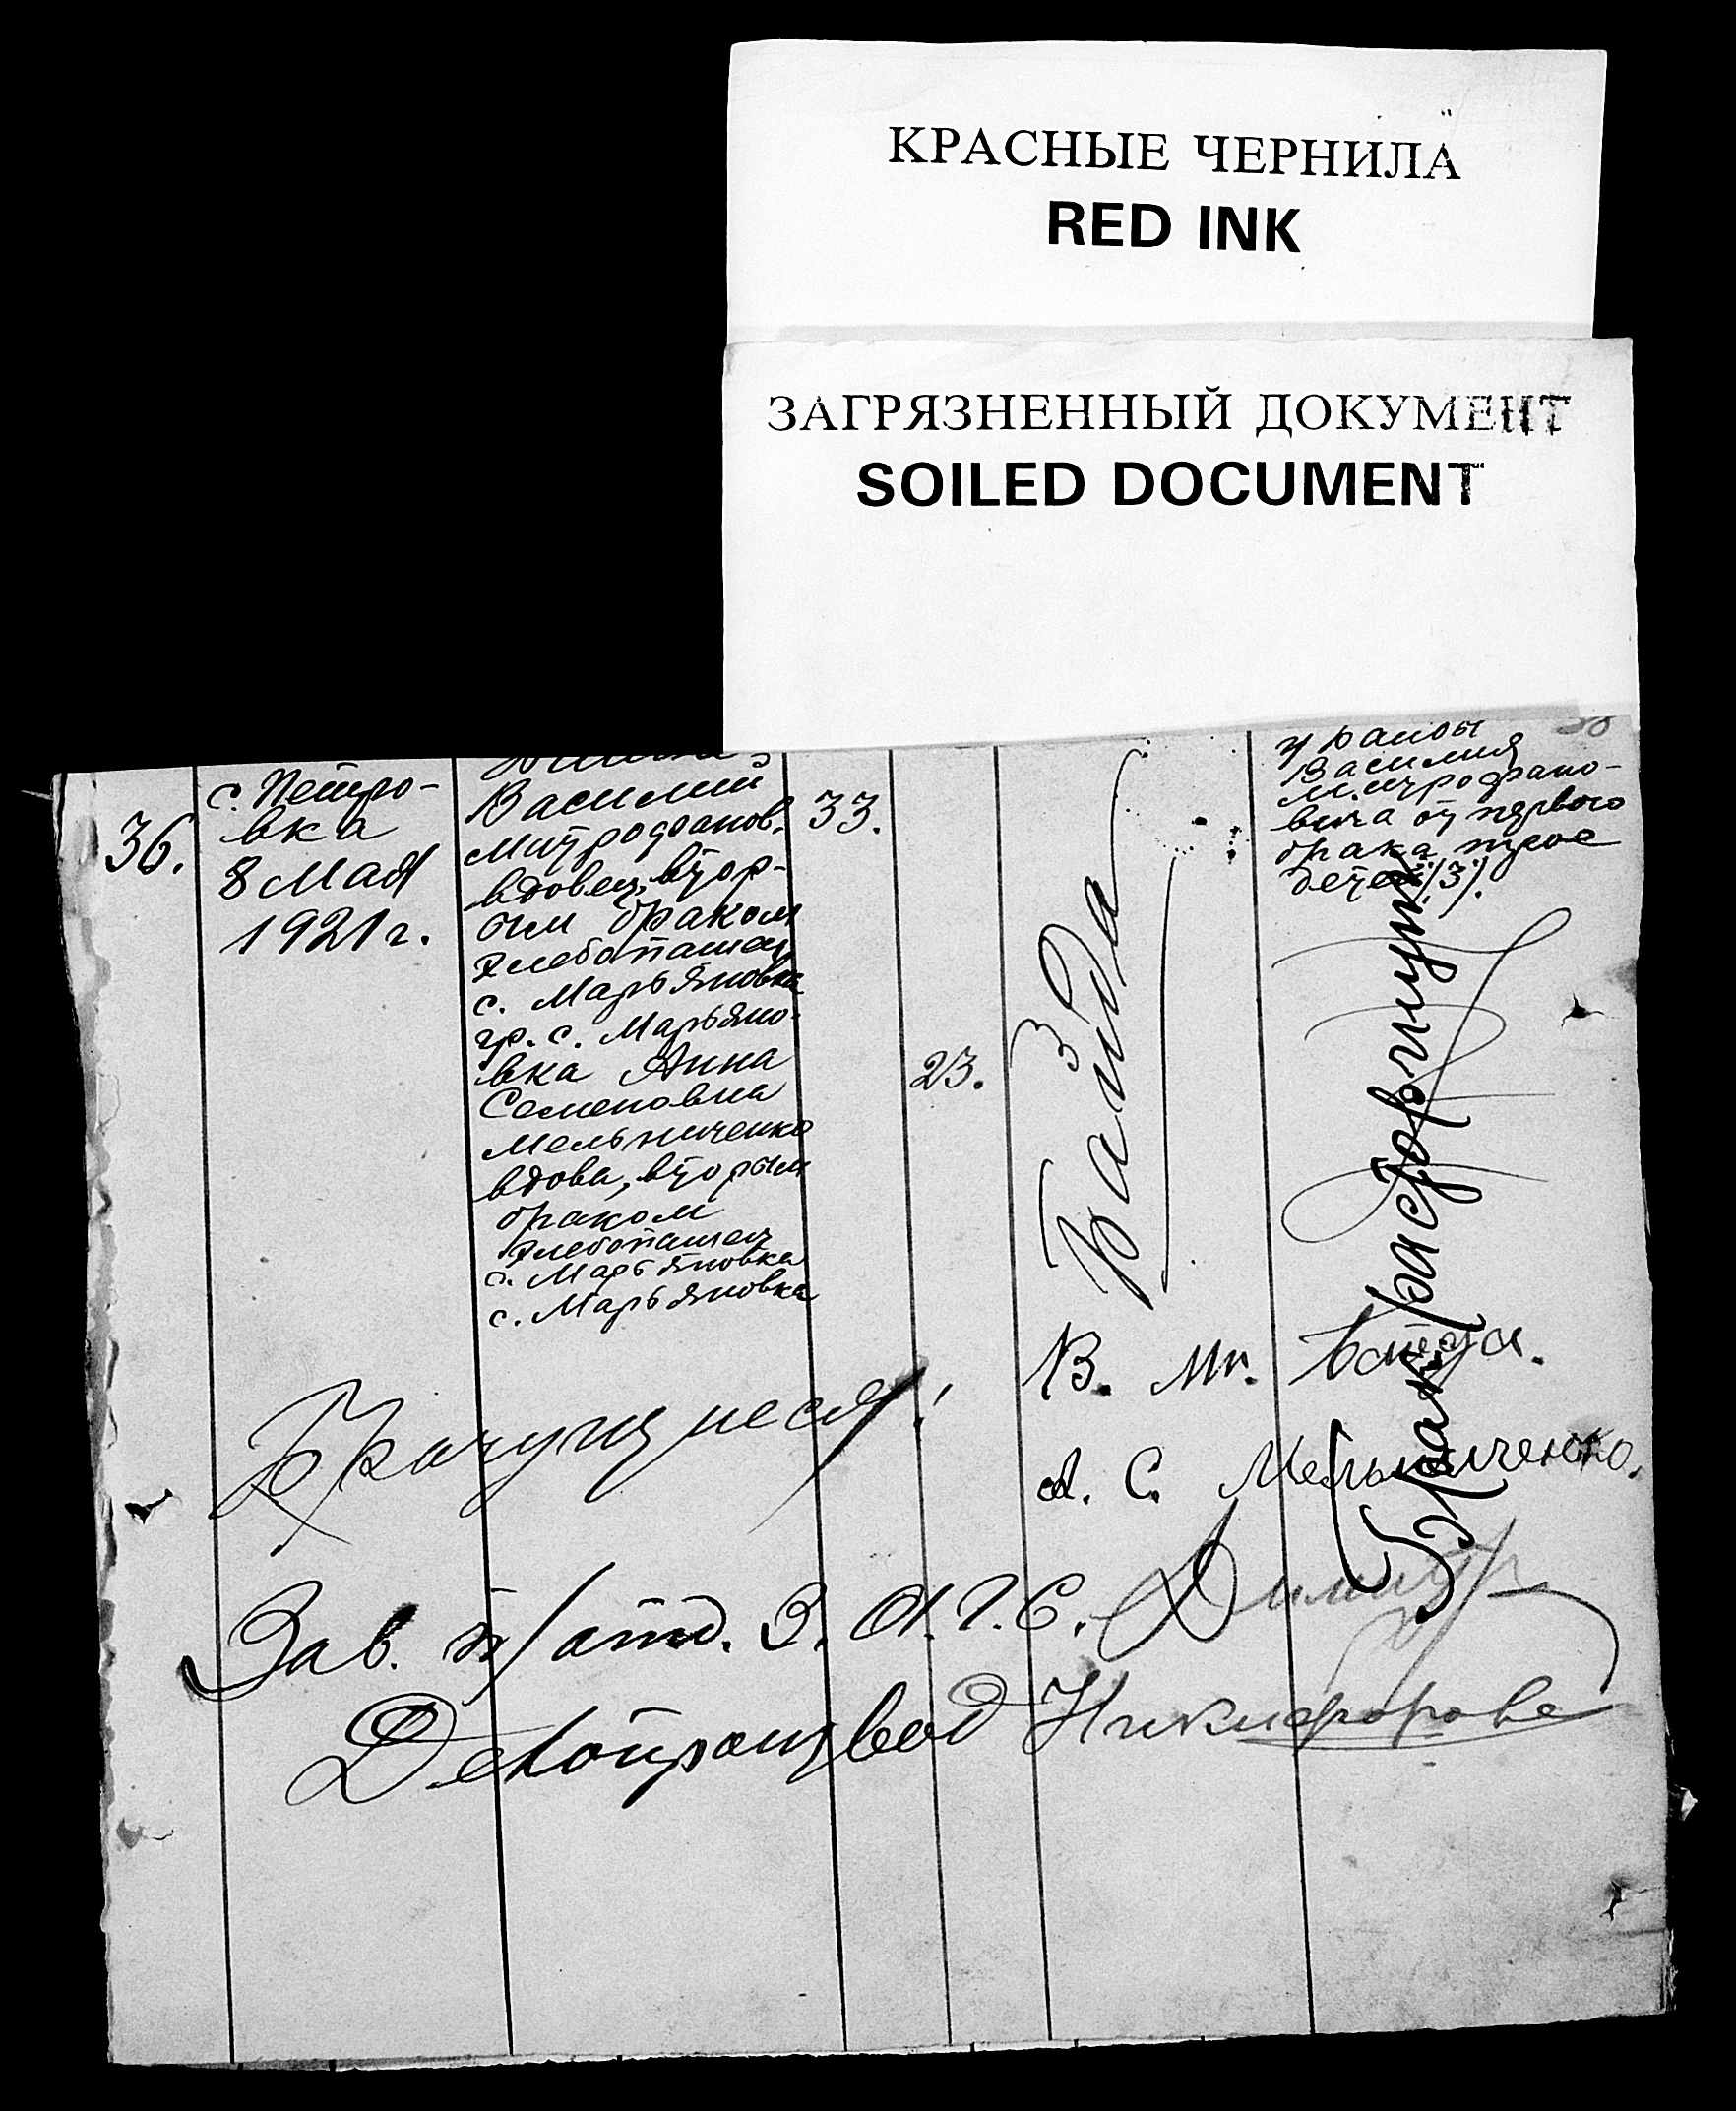 КРАСНЫЕ ЧЕРНИЛА
RED INK
ЗАГРЯЗНЕННЫЙ ДОКУМЕНТ
SOILED DOCUMENT
36.
с. Петро-
вка
8 Мая
1921 г.
Василий
Митрофанов.
вдовец, втор-
ым браком
хлебопашец
с. Марьяновка
гр. с. Марьяно-
вка Анна
Семеновна
Мельниченко
вдова, вторым
браком
хлебопашец
с. Марьяновка
с. Марьяновка
33.
23.
Байда
у Байды
Василия
Митрофано-
вича от первого
брака трое
детей /3/.
Брак расторгнут
Брачущиеся:
В. Ми. Байда.
А. С. Мельниченко.
Зав. п/отд. З. А. Г. С.
Делопроизвод Никифорова